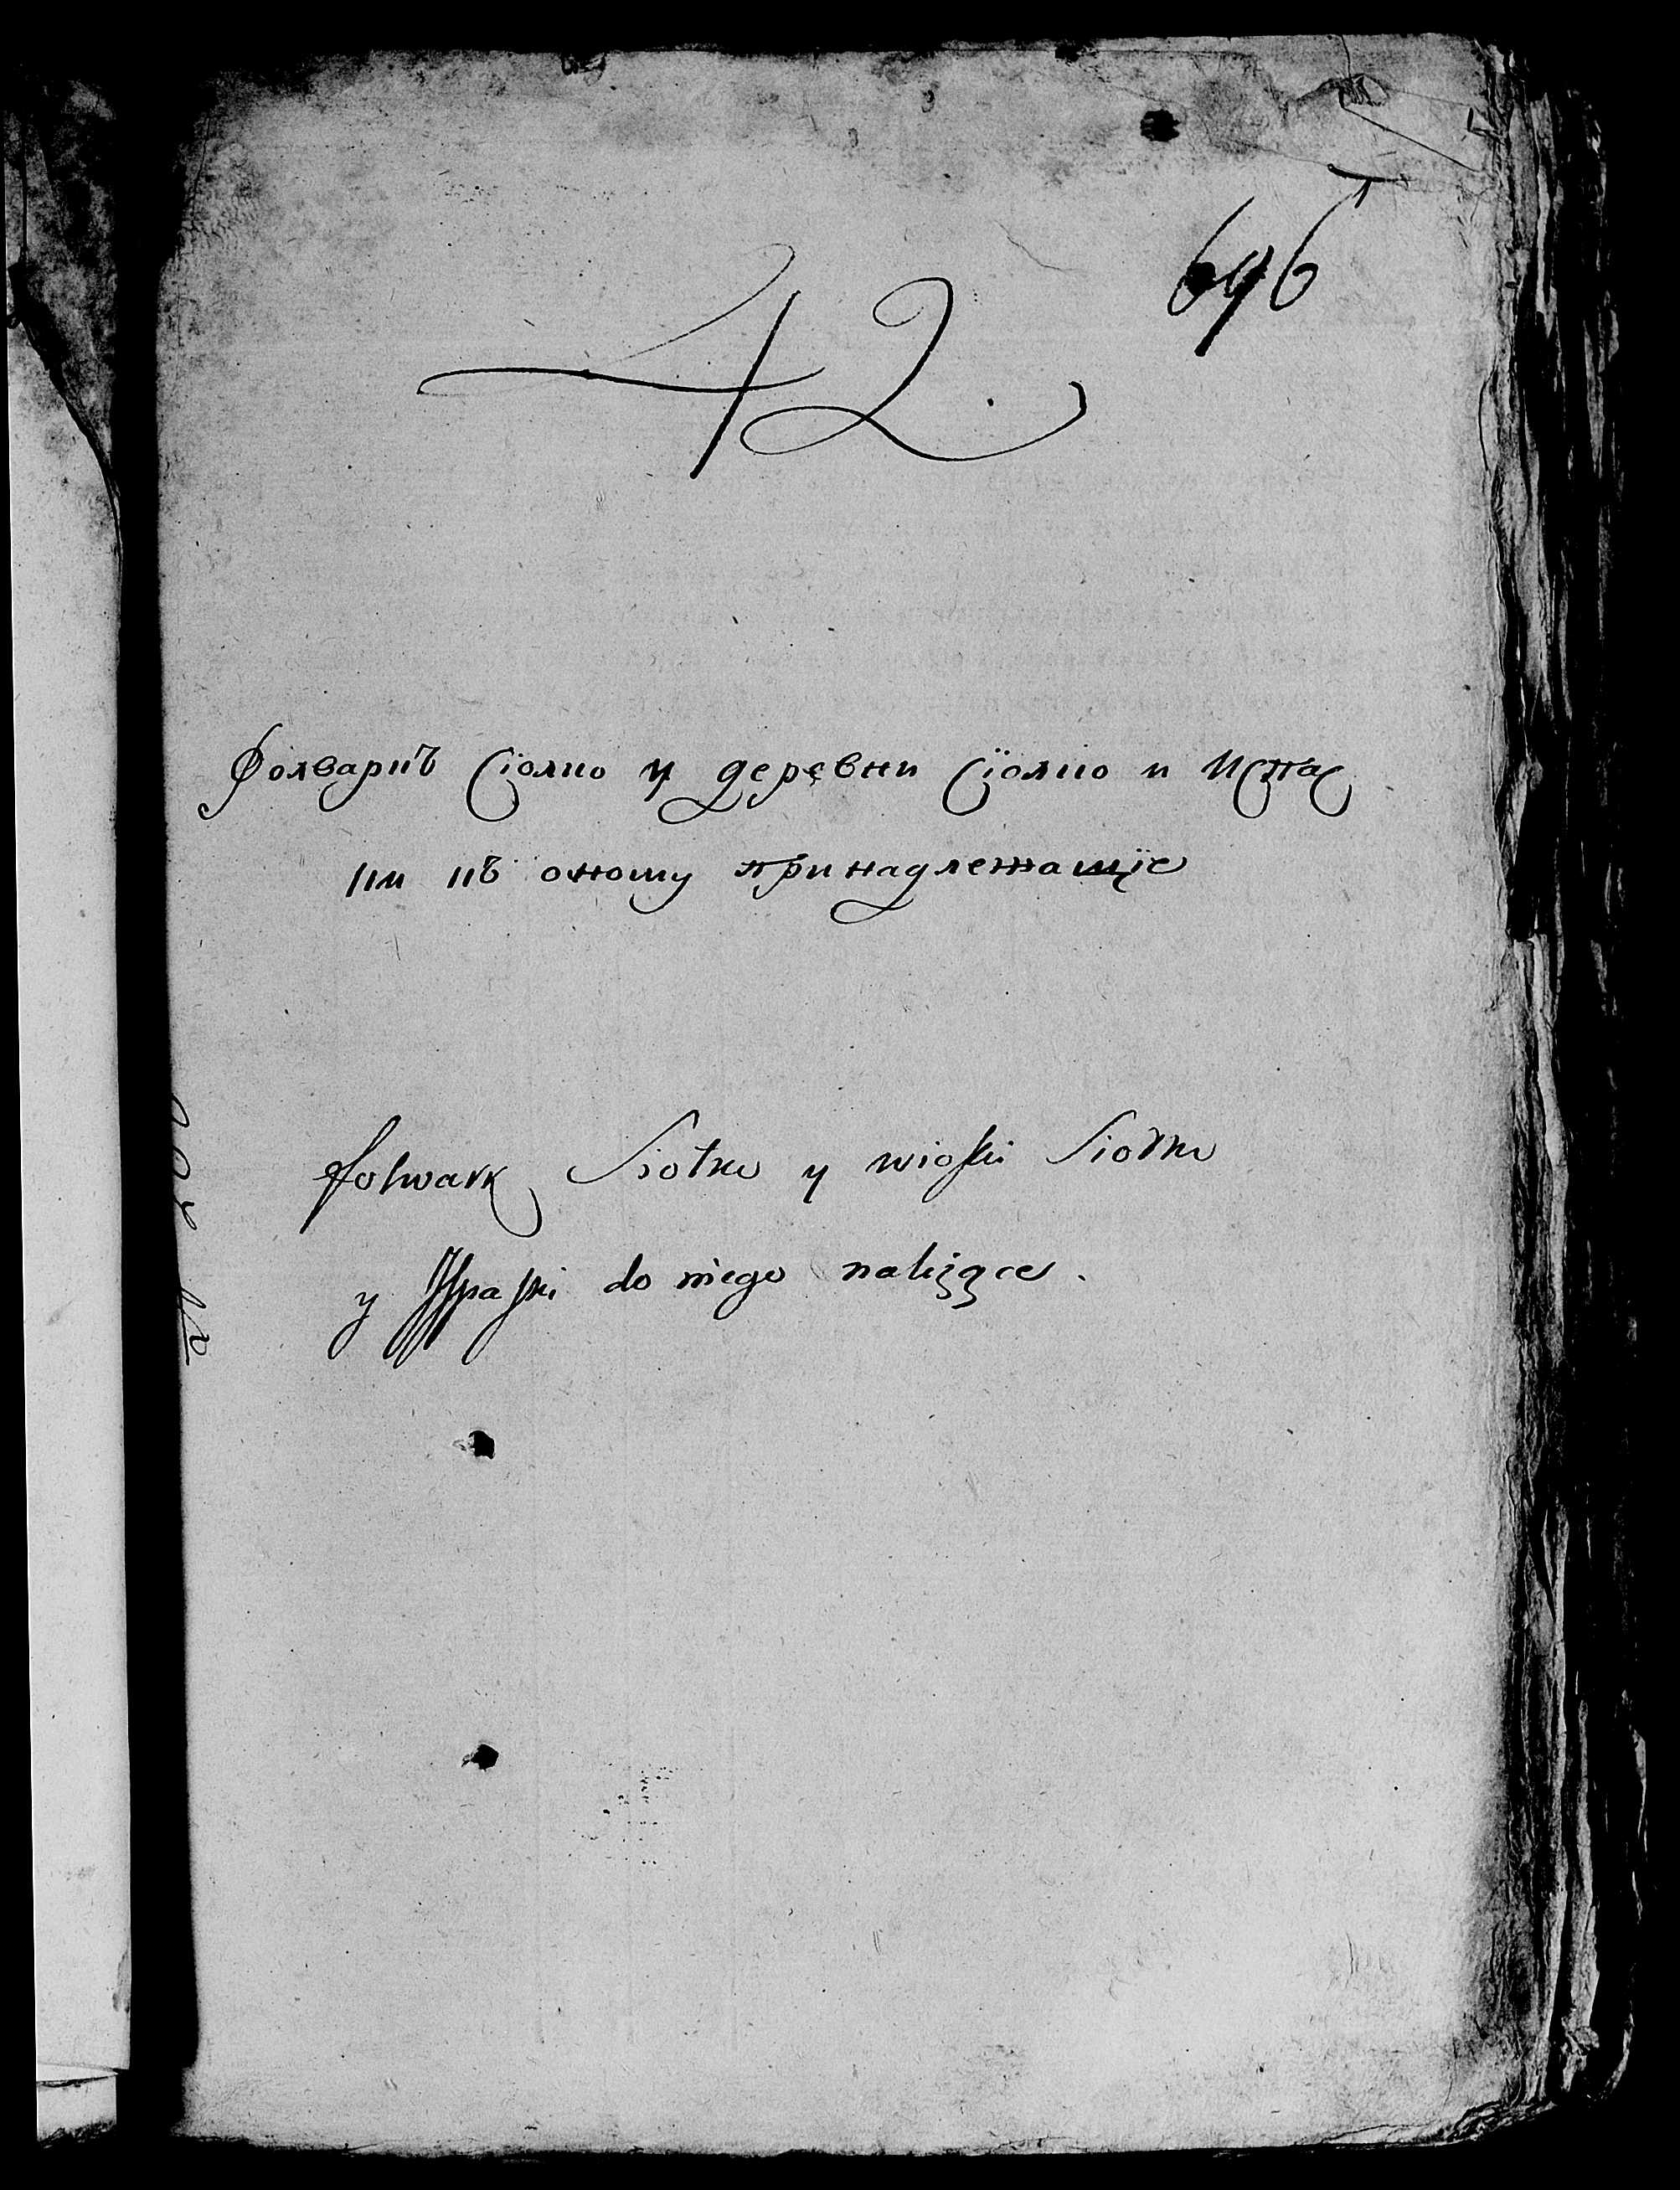 696
42.
Фолваркъ Сіолко и деревни Сіолко и Испас
ки къ оному принадлежащіе
folwark Siołko y wioski Siołko
y Ispaski do niego należące.